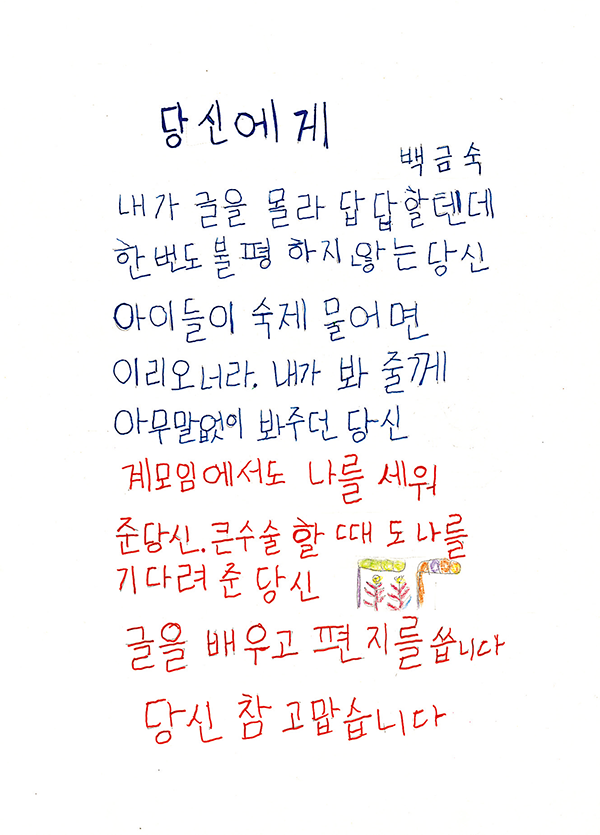 당신에게
백금숙
내가 글을 몰라 답답할텐데
한번도 불평 하지 않는 당신
아이들이 숙제 물어면
이리오너라. 내가 봐 줄께
아무말없이 봐주던 당신
계모임에서도 나를 세워
준당신. 큰수술 할 때 도 나를
기다려 준 당신
글을 배우고 편지를 씁니다
당신 참 고맙습니다